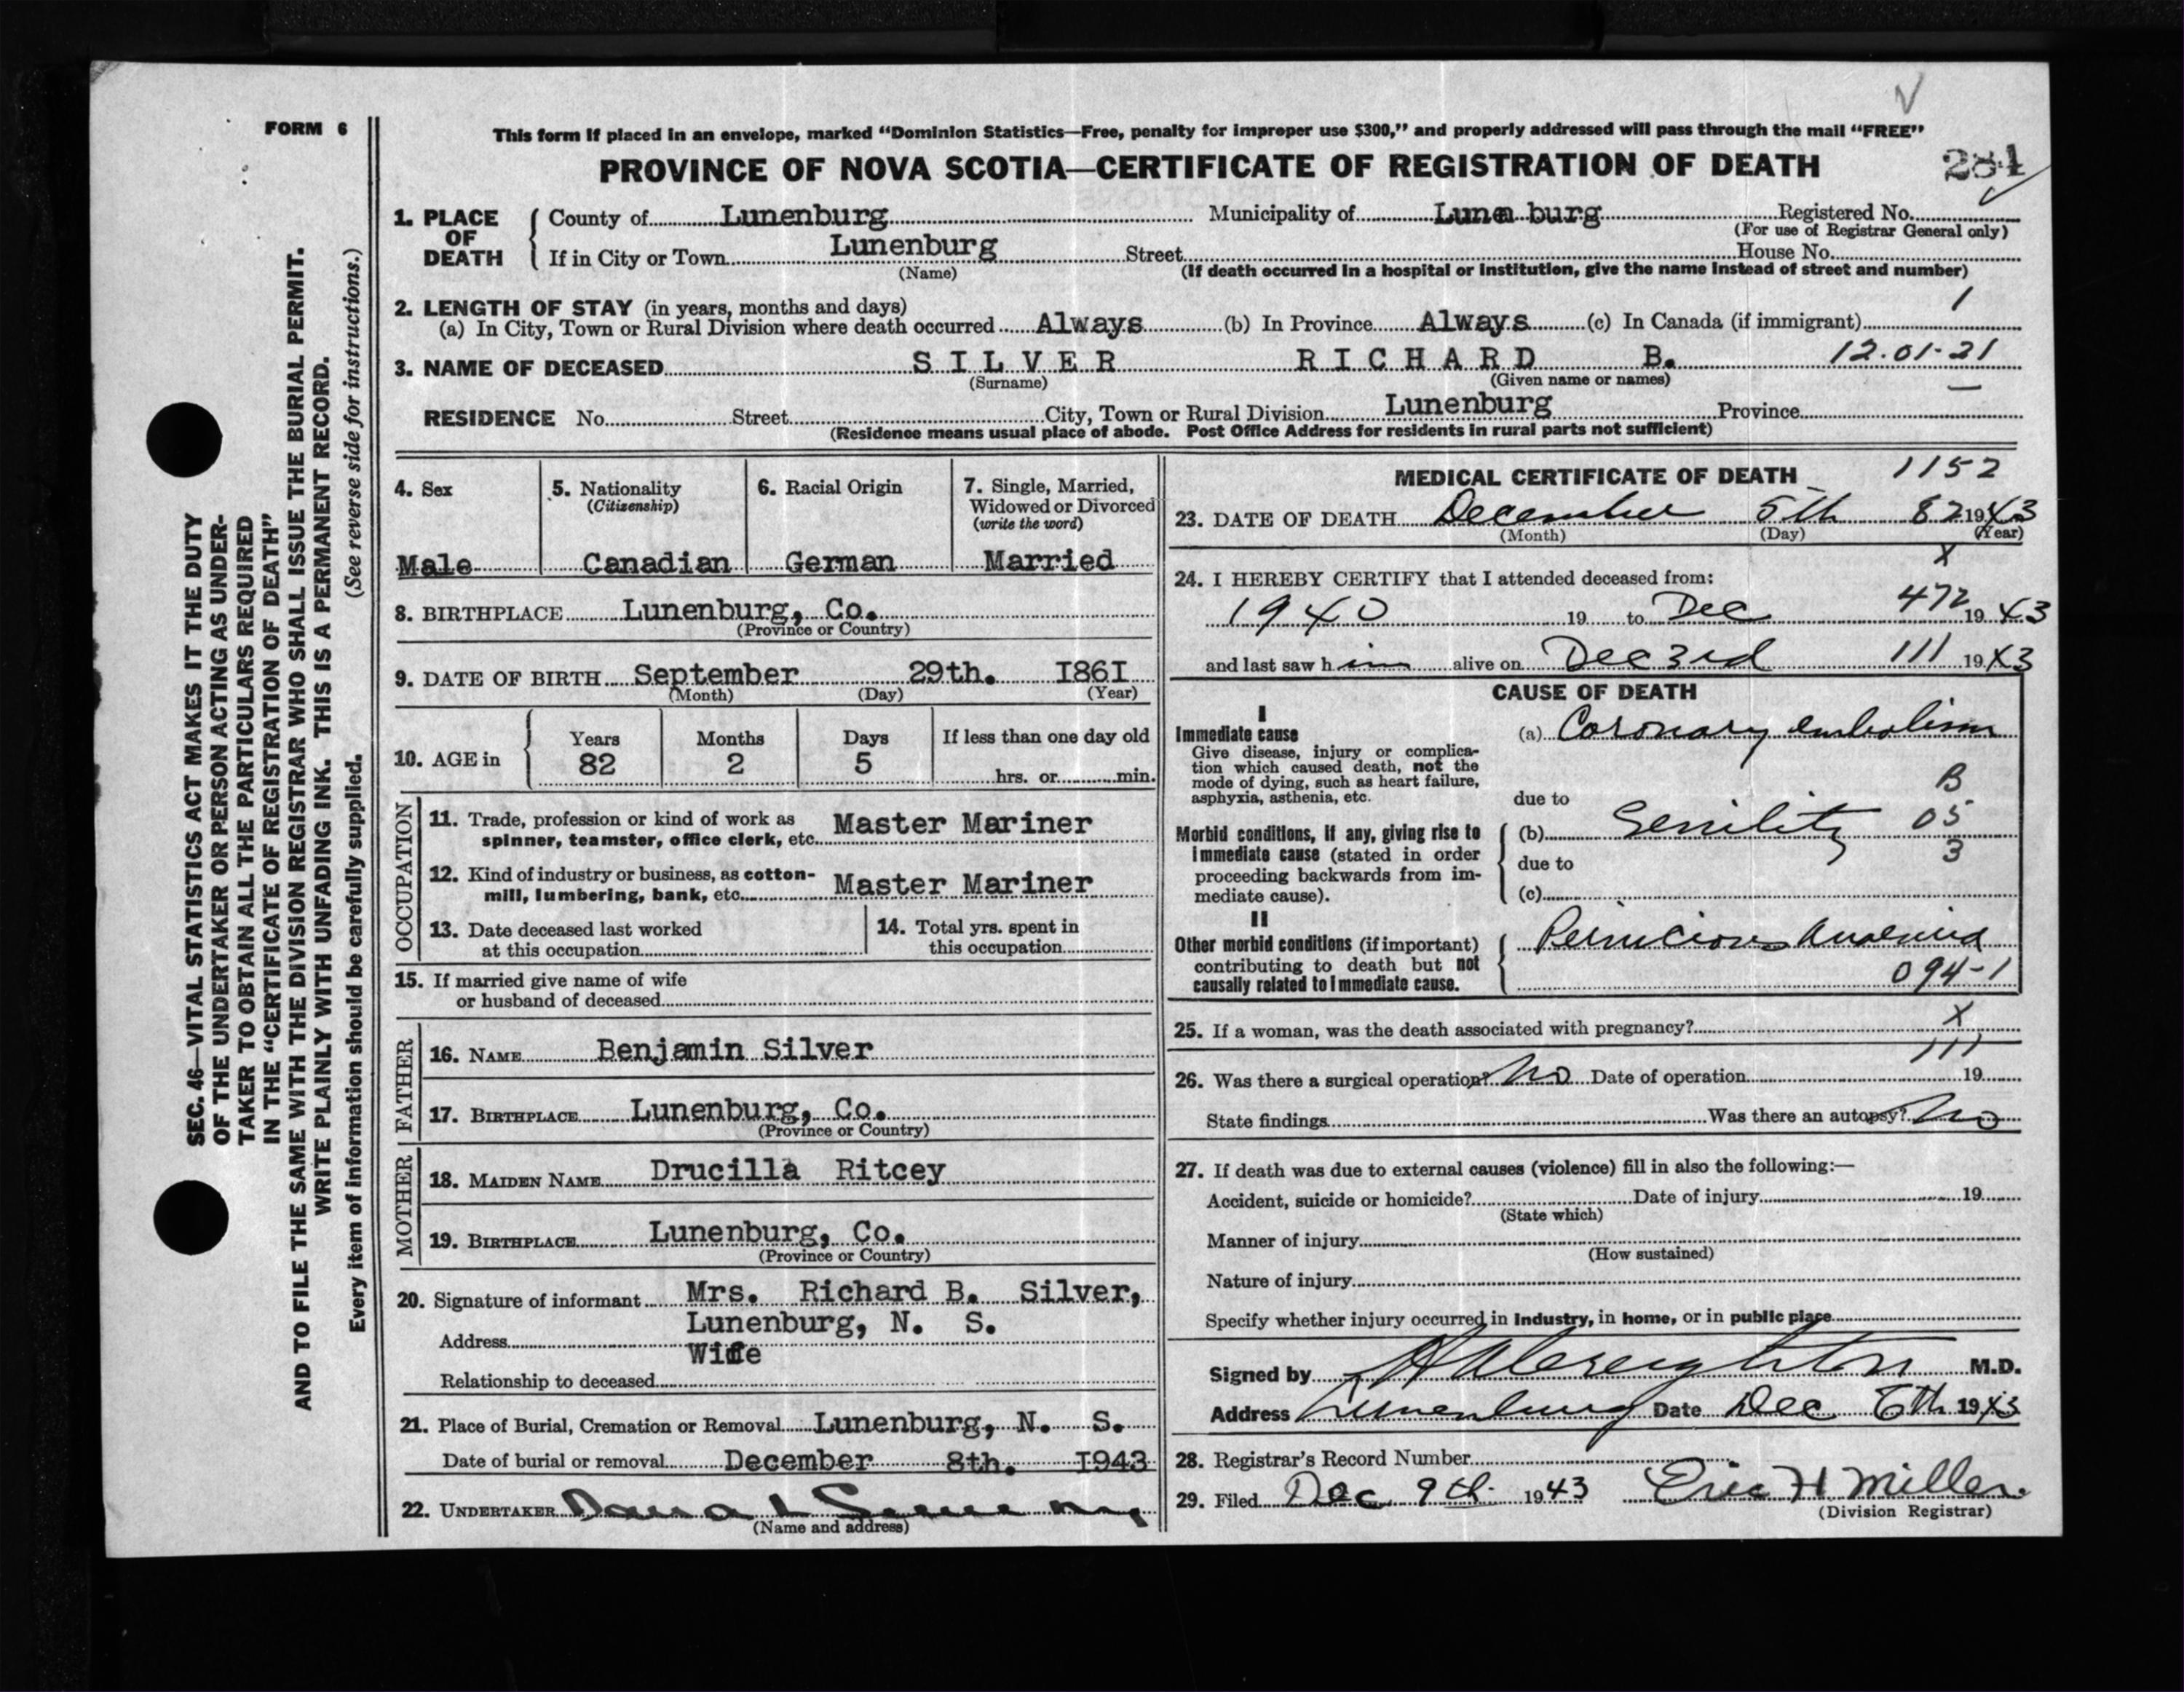 FORM 6
This form if placed in an envelope, marked "Dominion Statistics—Free, penalty for improper use $300," and properly addressed will pass through the mail "FREE"
PROVINCE OF NOVA SCOTIA—CERTIFICATE OF REGISTRATION OF DEATH
284
SEC. 46—VITAL STATISTICS ACT MAKES IT THE DUTY
OF THE UNDERTAKER OR PERSON ACTING AS UNDER-
TAKER TO OBTAIN ALL THE PARTICULARS REQUIRED
IN THE "CERTIFICATE OF REGISTRATION OF DEATH"
AND TO FILE THE SAME WITH THE DIVISION REGISTRAR WHO SHALL ISSUE THE BURIAL PERMIT.
WRITE PLAINLY WITH UNFADING INK. THIS IS A PERMANENT RECORD.
Every item of information should be carefully supplied. (See reverse side for instructions.)
1. PLACE OF DEATH
County of Lunenburg Municipality of Lunen burg Registered No.
(For use of Registrar General only)
If in City or Town Lunenburg Street House No.
(Name) (If death occurred in a hospital or institution, give the name instead of street and number)
2. LENGTH OF STAY (in years, months and days) 1
(a) In City, Town or Rural Division where death occurred Always (b) In Province Always (c) In Canada (if immigrant)
3. NAME OF DECEASED SILVER RICHARD B. 12.01-21
(Surname) (Given name or names)
RESIDENCE No. Street City, Town or Rural Division Lunenburg Province
(Residence means usual place of abode. Post Office Address for residents in rural parts not sufficient)
4. Sex
Male
5. Nationality
(Citizenship)
Canadian
6. Racial Origin
German
7. Single, Married,
Widowed or Divorced
(write the word)
Married
8. BIRTHPLACE Lunenburg, Co.
(Province or Country)
9. DATE OF BIRTH September 29th. I86I
(Month) (Day) (Year)
10. AGE in
Years Months Days If less than one day old
82 2 5 hrs. or min.
OCCUPATION
11. Trade, profession or kind of work as
spinner, teamster, office clerk, etc. Master Mariner
12. Kind of industry or business, as cotton-
mill, lumbering, bank, etc. Master Mariner
13. Date deceased last worked
at this occupation
14. Total yrs. spent in
this occupation
15. If married give name of wife
or husband of deceased
FATHER
16. NAME Benjamin Silver
17. BIRTHPLACE Lunenburg, Co.
(Province or Country)
MOTHER
18. MAIDEN NAME Drucilla Ritcey
19. BIRTHPLACE Lunenburg, Co.
(Province or Country)
20. Signature of informant Mrs. Richard B. Silver,
Address Lunenburg, N. S.
Wife
Relationship to deceased
21. Place of Burial, Cremation or Removal Lunenburg, N. S.
Date of burial or removal December 8th. I943
22. UNDERTAKER
(Name and address)
MEDICAL CERTIFICATE OF DEATH 1152
23. DATE OF DEATH December 5th 82 1943
(Month) (Day) (Year)
X
24. I HEREBY CERTIFY that I attended deceased from:
1940 19 to Dec 472 1943
and last saw h im alive on Dec 3rd 111 1943
CAUSE OF DEATH
I
Immediate cause
Give disease, injury or complica-
tion which caused death, not the
mode of dying, such as heart failure,
asphyxia, asthenia, etc.
(a) Coronary embolism
B
due to
Morbid conditions, if any, giving rise to
immediate cause (stated in order
proceeding backwards from im-
mediate cause).
(b) Senility 05
due to 3
(c)
II
Other morbid conditions (if important)
contributing to death but not
causally related to immediate cause.
Pernicious Anaemia
094-1
25. If a woman, was the death associated with pregnancy? X
111
26. Was there a surgical operation? No Date of operation 19
State findings Was there an autopsy? No
27. If death was due to external causes (violence) fill in also the following:—
Accident, suicide or homicide? Date of injury 19
(State which)
Manner of injury
(How sustained)
Nature of injury
Specify whether injury occurred in industry, in home, or in public place
Signed by Creighton M.D.
Address Lunenburg Date Dec 6th 1943
28. Registrar's Record Number
29. Filed Dec 9th 1943 Eric H Miller.
(Division Registrar)